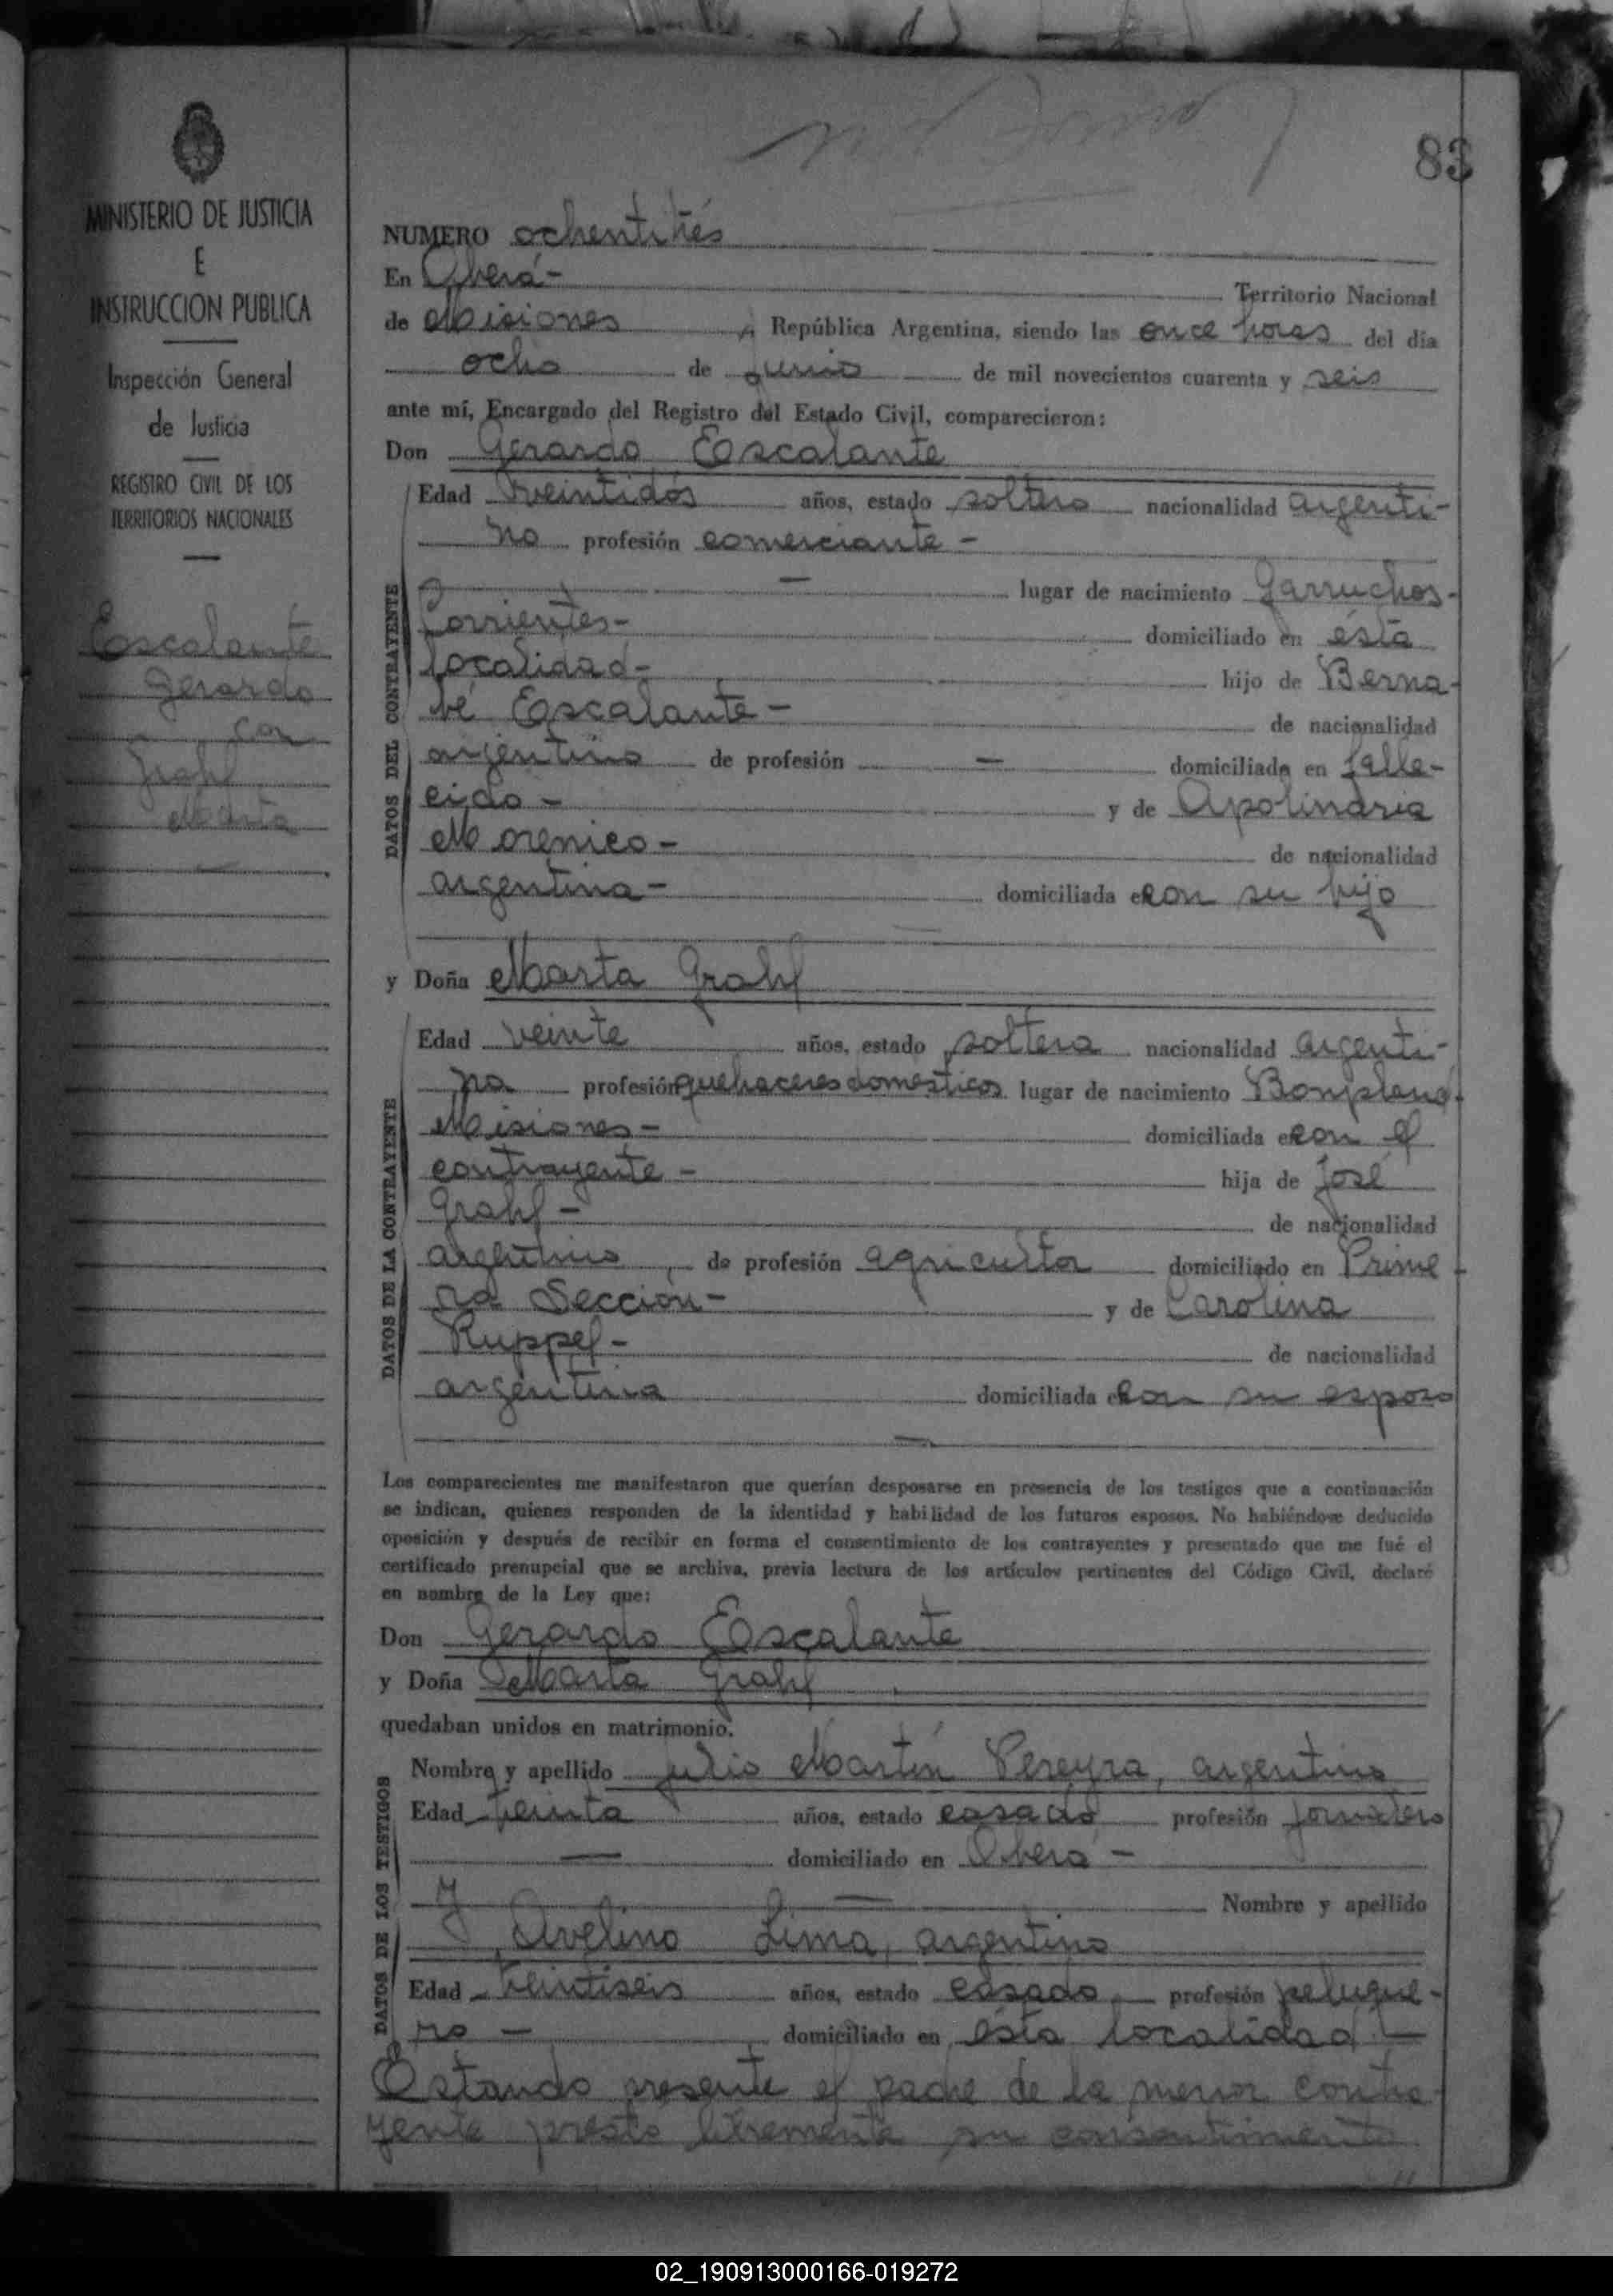 83
MINISTERIO DE JUSTICIA
E
INSTRUCCION PUBLICA
Inspección General
de Justicia
REGISTRO CIVIL DE LOS
TERRITORIOS NACIONALES
Escalante
Gerardo
con
Grahl
Marta
NUMERO ochentitrés
En Oberá-
Territorio Nacional
de Misiones, República Argentina, siendo las once horas del día
ocho de junio de mil novecientos cuarenta y seis
ante mí, Encargado del Registro del Estado Civil, comparecieron:
Don Gerardo Escalante
DATOS DEL CONTRAYENTE
Edad veintidós años, estado soltero nacionalidad argenti-
no profesión comerciante -
- lugar de nacimiento Garruchos-
Corrientes- domiciliado en ésta
localidad- hijo de Berna-
bé Escalante - de nacionalidad
argentino de profesión - domiciliado en falle-
cido - y de Apolinaria
Morenico - de nacionalidad
argentina - domiciliada con su hijo
y Doña Marta Grahl
DATOS DE LA CONTRAYENTE
Edad veinte años, estado soltera nacionalidad argenti-
na profesión quehaceres domésticos lugar de nacimiento Bonpland-
Misiones - domiciliada con el
contrayente - hija de José
Grahl - de nacionalidad
argentino, de profesión agricultor domiciliado en Prime-
ra Seccion - y de Carolina
Ruppel - de nacionalidad
argentina domiciliada con su esposo
Los comparecientes me manifestaron que querían desposarse en presencia de los testigos que a continuación
se indican, quienes responden de la identidad y habilidad de los futuros esposos. No habiéndose deducido
oposición y después de recibir en forma el consentimiento de los contrayentes y presentado que me fué el
certificado prenupcial que se archiva, previa lectura de los artículos pertinentes del Código Civil, declaré
en nombre de la Ley que:
Don Gerardo Escalante
y Doña Marta Grahl
quedaban unidos en matrimonio.
DATOS DE LOS TESTIGOS
Nombre y apellido Julio Martín Pereyra, argentino
Edad treinta años, estado casado profesión jornalero
- domiciliado en Oberá -
y - Nombre y apellido
Avelino Lima, argentino
Edad veintiseis años, estado casado profesión peluque-
ro - domiciliado en ésta localidad. -
Estando presente el padre de la menor contra-
yente prestó libremente su consentimiento
02_190913000166-019272